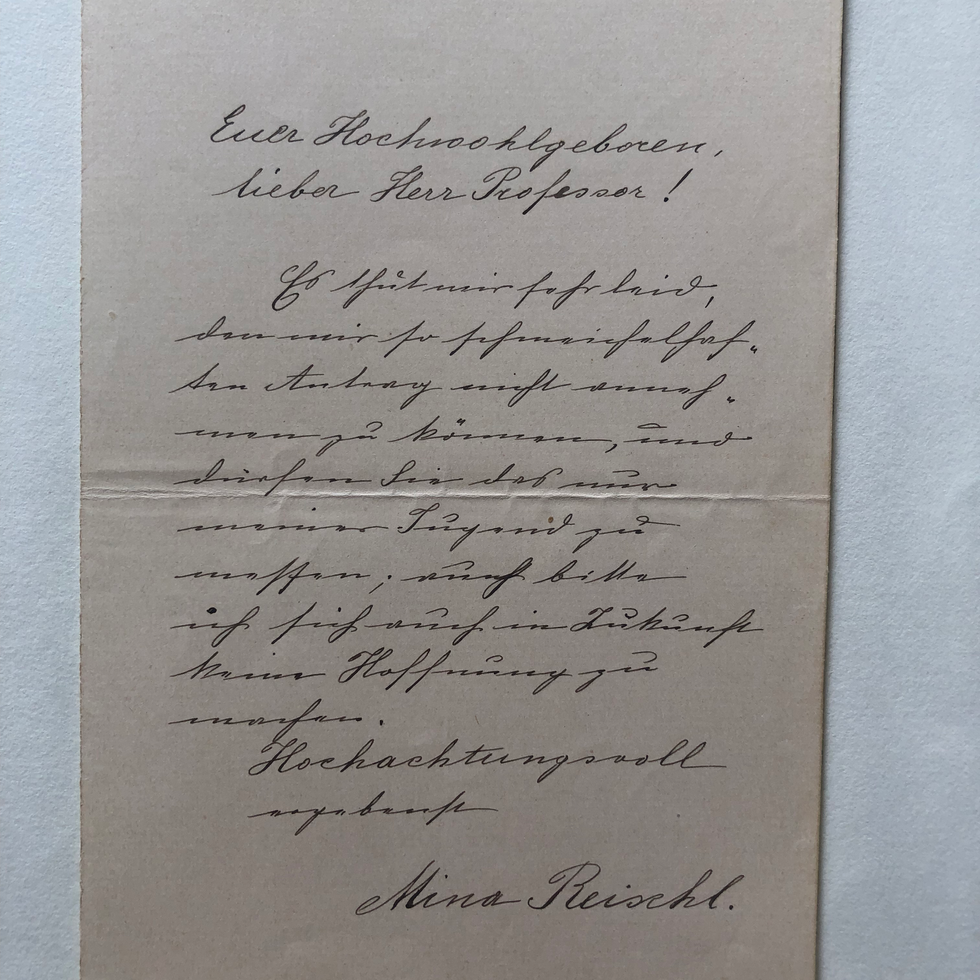 Euer Hochwohlgeboren,
lieber Herr Professor!
Es thut mir sehr leid,
den mir so schmeichelhaf„
ten Antrag nicht anneh„
men zu können, und
dürfen Sie das nur
meiner Jugend zu
messen; auch bitte
ich sich auch in Zukunft
keine Hoffnung zu
machen.
Hochachtungsvoll
ergebenst
Mina Reischl.